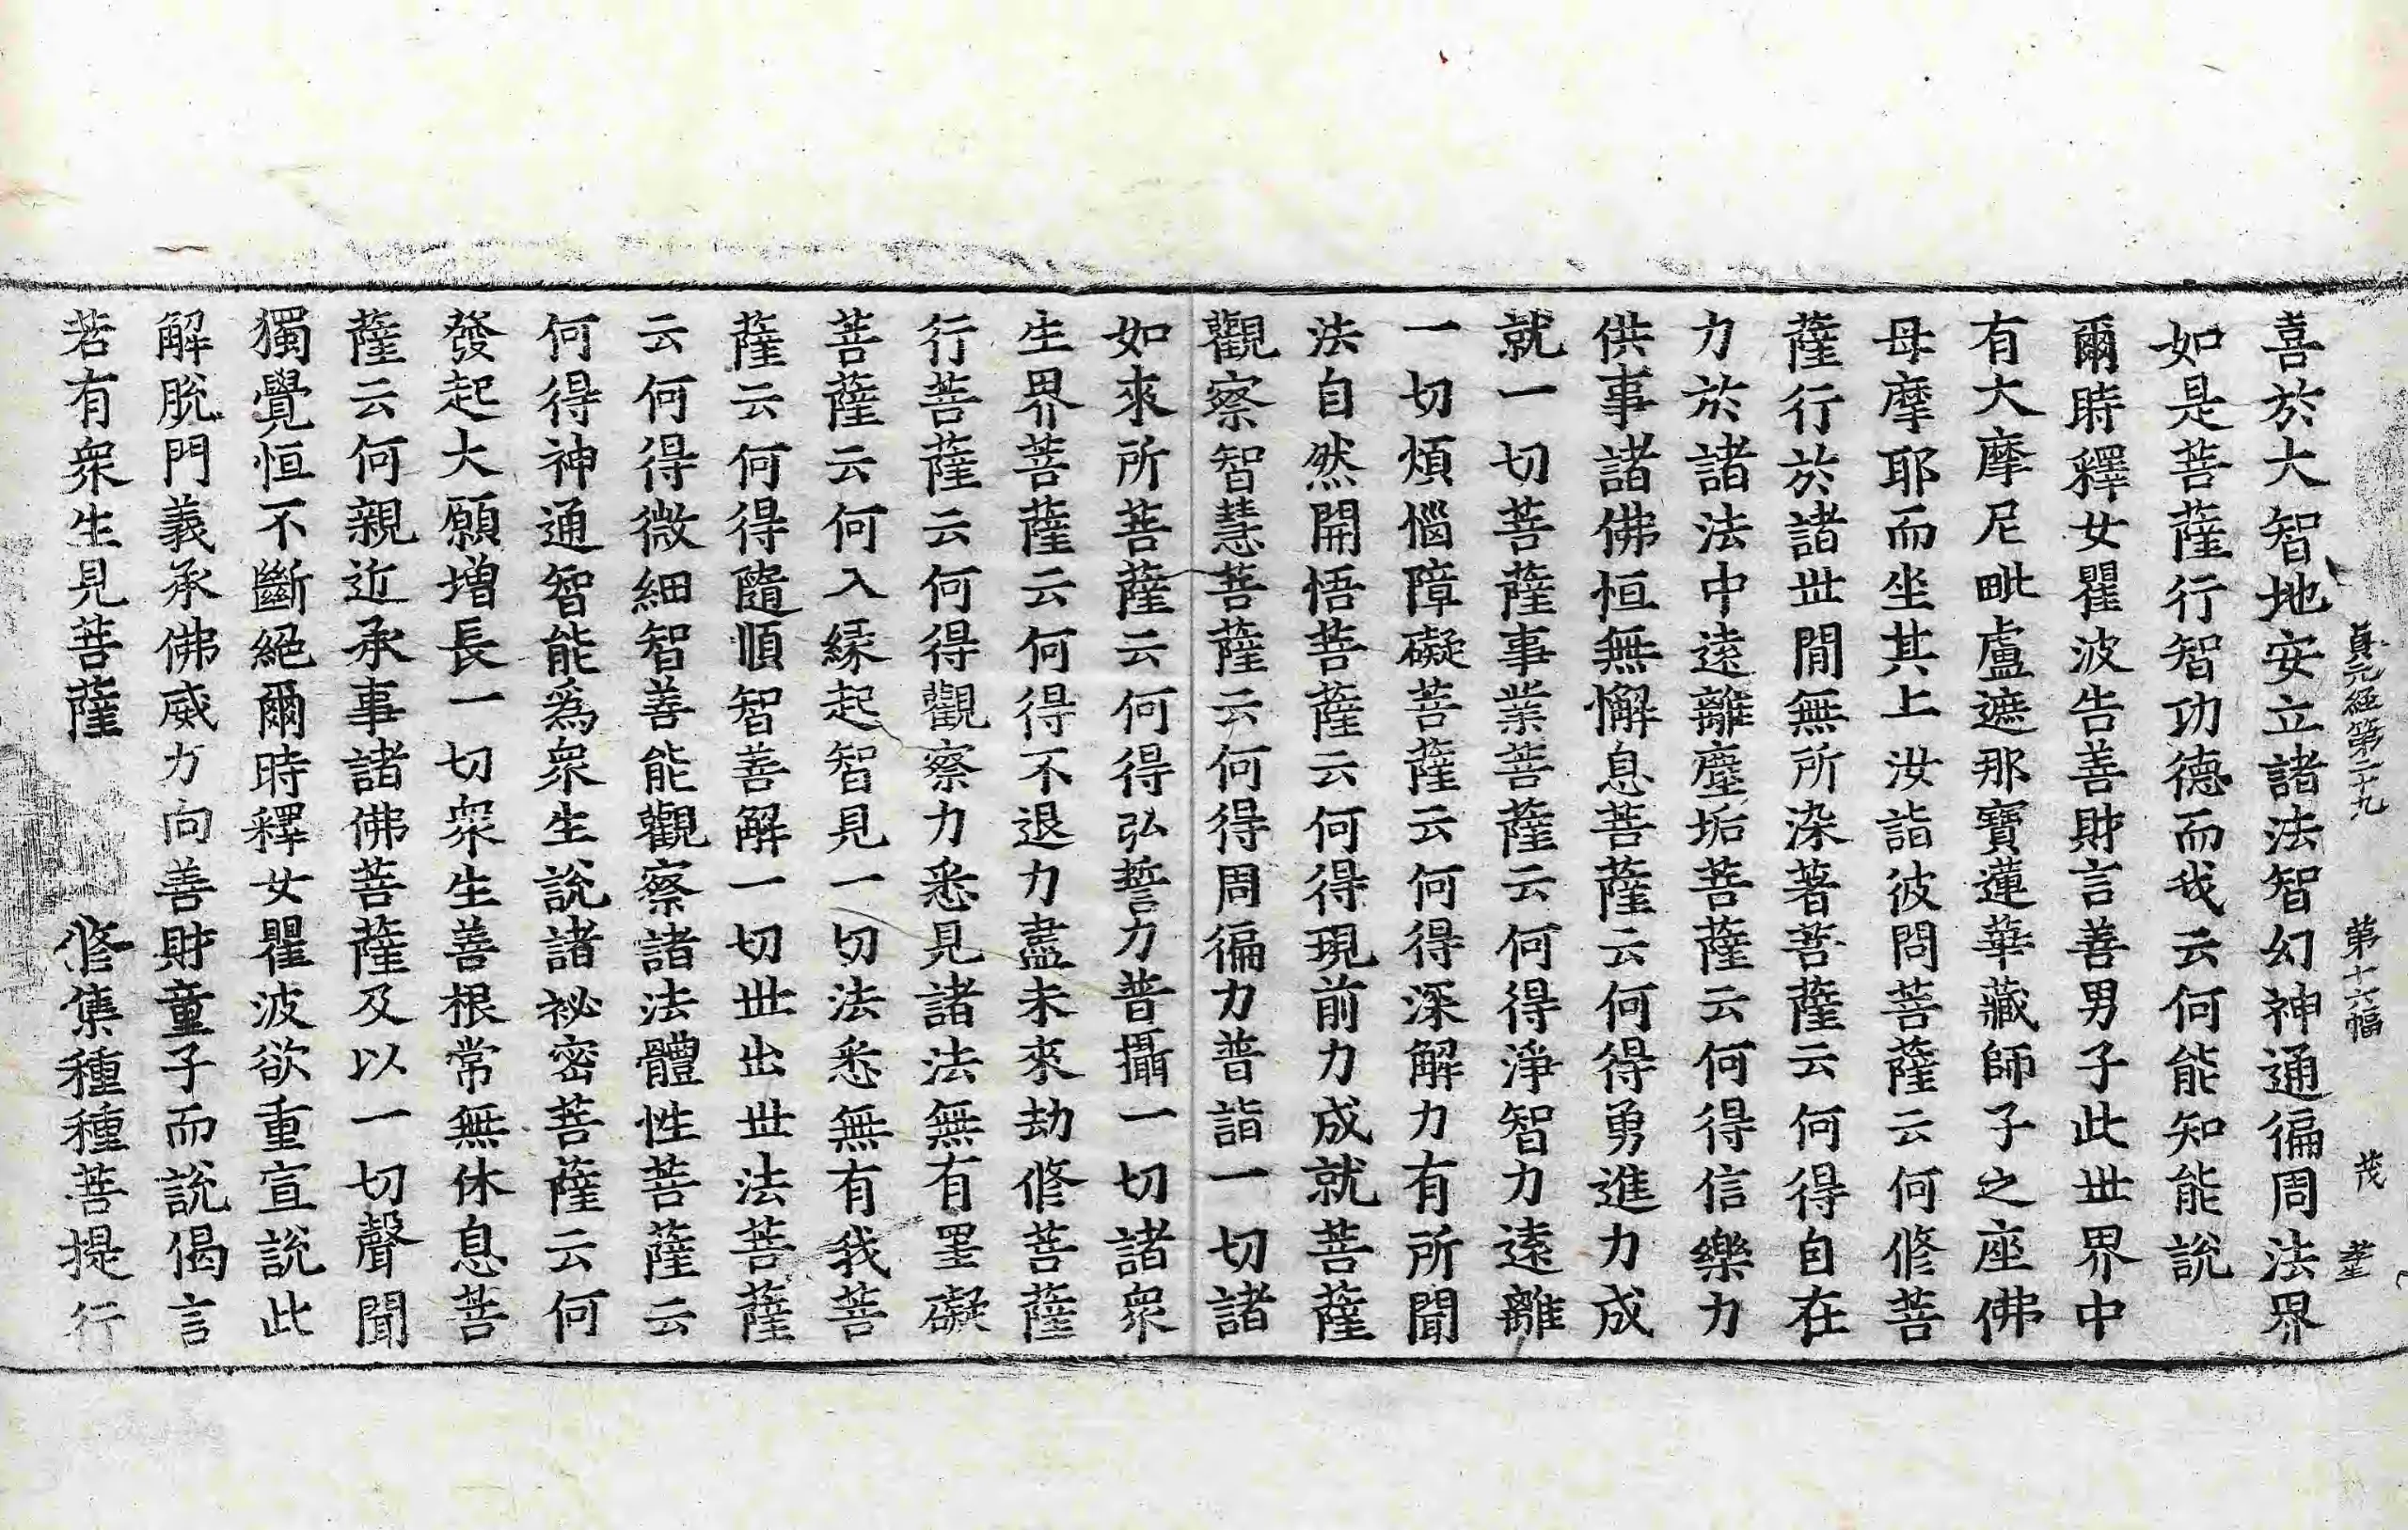 貞元經第二十九 第十六幅 茂
喜於大智地安立諸法智幻神通徧周法界
如是菩薩行智功德而我云何能知能說
爾時釋女瞿波告善財言善男子此世界中
有大摩尼毗盧遮那寶蓮華藏師子之座佛
母摩耶而坐其上汝詣彼問菩薩云何修菩
薩行於諸世閒無所染著菩薩云何得自在
力於諸法中遠離塵垢菩薩云何得信樂力
供事諸佛恒無懈息菩薩云何得勇進力成
就一切菩薩事業菩薩云何得淨智力遠離
一切煩惱障礙菩薩云何得深解力有所聞
法自然開悟菩薩云何得現前力成就菩薩
觀察智慧菩薩云何得周徧力普詣一切諸
如來所菩薩云何得弘誓力普攝一切諸衆
生界菩薩云何得不退力盡未來劫修菩薩
行菩薩云何得觀察力悉見諸法無有罣礙
菩薩云何入緣起智見一切法悉無有我菩
薩云何得隨順智善解一切世出世法菩薩
云何得微細智善能觀察諸法體性菩薩云
何得神通智能爲衆生說諸祕密菩薩云何
發起大願增長一切衆生善根常無休息菩
薩云何親近承事諸佛菩薩及以一切聲聞
獨覺恒不斷絕爾時釋女瞿波欲重宣說此
解脫門義承佛威力向善財童子而說偈言
若有衆生見菩薩 修集種種菩提行